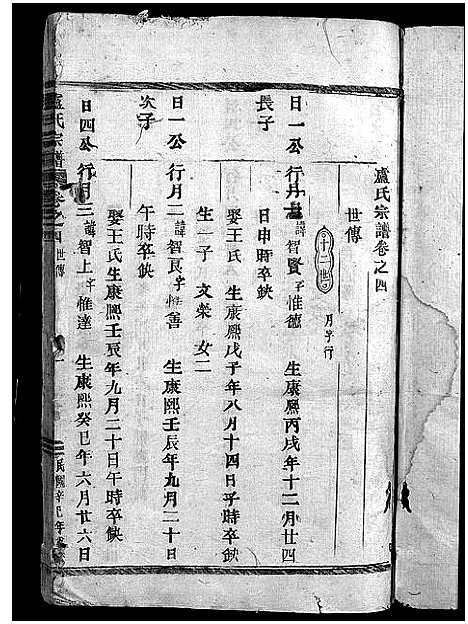 盧氏宗譜卷之四
世傳
十二世
月字行
日一公 行月 諱智賢 字惟德 生康熙丙戌年十二月廿四
長子
日申時卒缺
娶王氏 生康熙戊子年八月十四日子時卒缺
生一子 文榮 女二
日一公 行月二 諱智良 字惟善 生康熙壬辰年九月二十日
次子
午時卒缺
娶王氏生康熙壬辰年九月二十日午時卒缺
日四公 行月三 諱智上 字惟達 生康熙癸巳年六月廿六日
盧氏宗譜 卷之四 世傳 一 民國辛巳年